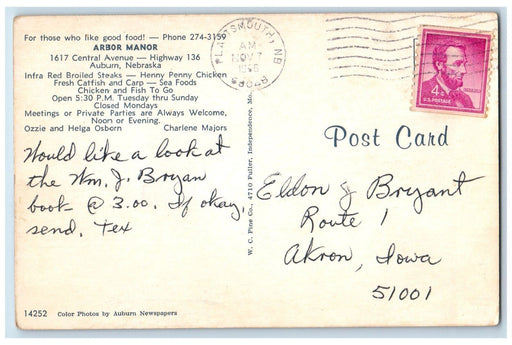 For those who like good food! — Phone 274-3159
ARBOR MANOR
1617 Central Avenue — Highway 136
Auburn, Nebraska
Infra Red Broiled Steaks — Henny Penny Chicken
Fresh Catfish and Carp — Sea Foods
Chicken and Fish To Go
Open 5:30 P.M. Tuesday thru Sunday
Closed Mondays
Meetings or Private Parties are Always Welcome,
Noon or Evening.
Ozzie and Helga Osborn Charlene Majors
Would like a look at
the Wm. J. Bryan
book @ 3.00. If okay,
send. Tex
14252 Color Photos by Auburn Newspapers
W. C. Pine Co., 4710 Fuller, Independence, Mo.
PLATTSMOUTH, NB
AM
NOV
4¢
U.S. POSTAGE
Post Card
Eldon J Bryant
Route 1
Akron, Iowa
51001